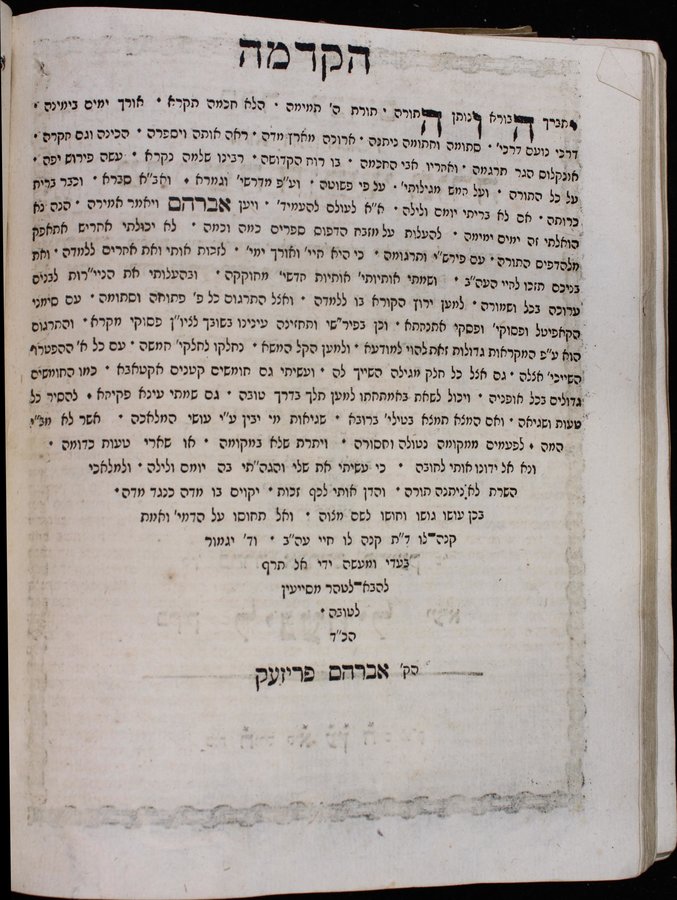 הקדמה
יתברך ה בורא ו נותן ה תורה · תורת ה' תמימה · הלא חכמה תקרא · אורך ימים בימינה ·
דרכי נועם דרכי' · סתומה וחתומה ניתנה · ארוכה מארץ מדה · ראה אותה ויספרה · הכינה וגם חקרה ·
אונקלוס הגר תרגמה · ואחריו אבי החכמה · בו רוח הקדושה · רבינו שלמה נקרא · עשה פירוש יפה ·
על כל התורה · ועל חמש מגילותי' · על פי פשוטה · וע"פ מדרשי' וגמרא · וא"א סברא · וכבר ברית
כרותה · אם לא בריתי יומם ולילה · א"א לעולם להעמיד' · ויען אברהם ויאמר אמירה · הנה נא
הואלתי זה ימים ימימה · להעלות על מזבח הדפוס ספרים כמה וכמה · לא יכולתי אחריש אתאפק
מלהדפיס התורה · עם פירש"י ותרגומה · כי היא חיי' ואורך ימי' · לזכות אותי ואת אחרים ללמדה · ואת
בניכם תזכו לחיי העה"ב · ושמתי אותיותי' אותיות חדשי' מחוקקה · ובהעלותי את הניי"רות לבנים
ערוכה בכל ושמורה · למען ירוץ הקורא בו ללמדה · ואצל התרגום כל פ' פתוחה וסתומה · עם סימני
הקאפיטל ופסוקי' ופסקי אתנחתא · וכן בפיר"שי ותחזינה עינינו בשובך לציו"ן פסוקי מקרא · והתרגום
הוא ע"פ המקראות גדולות זאת להוי למודעא · ולמען הקל המשא · נחלקו לחלקי' חמשה · עם כל א' ההפטרו'
השייכי' אצלה · גם אצל כל חלק מגילה השייך לה · ועשיתי גם חומשים קטנים אקטאבא · כמו החומשים
גדולים בכל אופניה · ויכול לשאת באמתחתו למען תלך בדרך טובה · גם שמתי עינא פקיחא · להסיר כל
טעות ושגיאה · ואם המצא תמצא בטילי' ברובא · שגיאות מי יבין ע"י עושי המלאכה · אשר לא מב"י
המה · לפעמים ממקומה נטולה וחסורה · ויתרת שלא במקומה · או שארי טעות כדומה ·
ונא אל ידונו אותי לחובה · כי עשיתי את שלי והגה"תי בה יומם ולילה · ולמלאכי
השרת לא ניתנה תורה · והדן אותי לכף זכות · יקוים בו מדה כנגד מדה ·
בכן עושו גושו וחושו לשם מצוה · ואל תחוסו על הדמי' ואמת
קנה־לו ד"ת קנה לו חיי עה"ב · וד' יגמור
בעדי ומעשה ידי אל תרף
להבא־לטהר מסייעין
לטובה ·
הכ"ד
הק' אברהם פריזעק